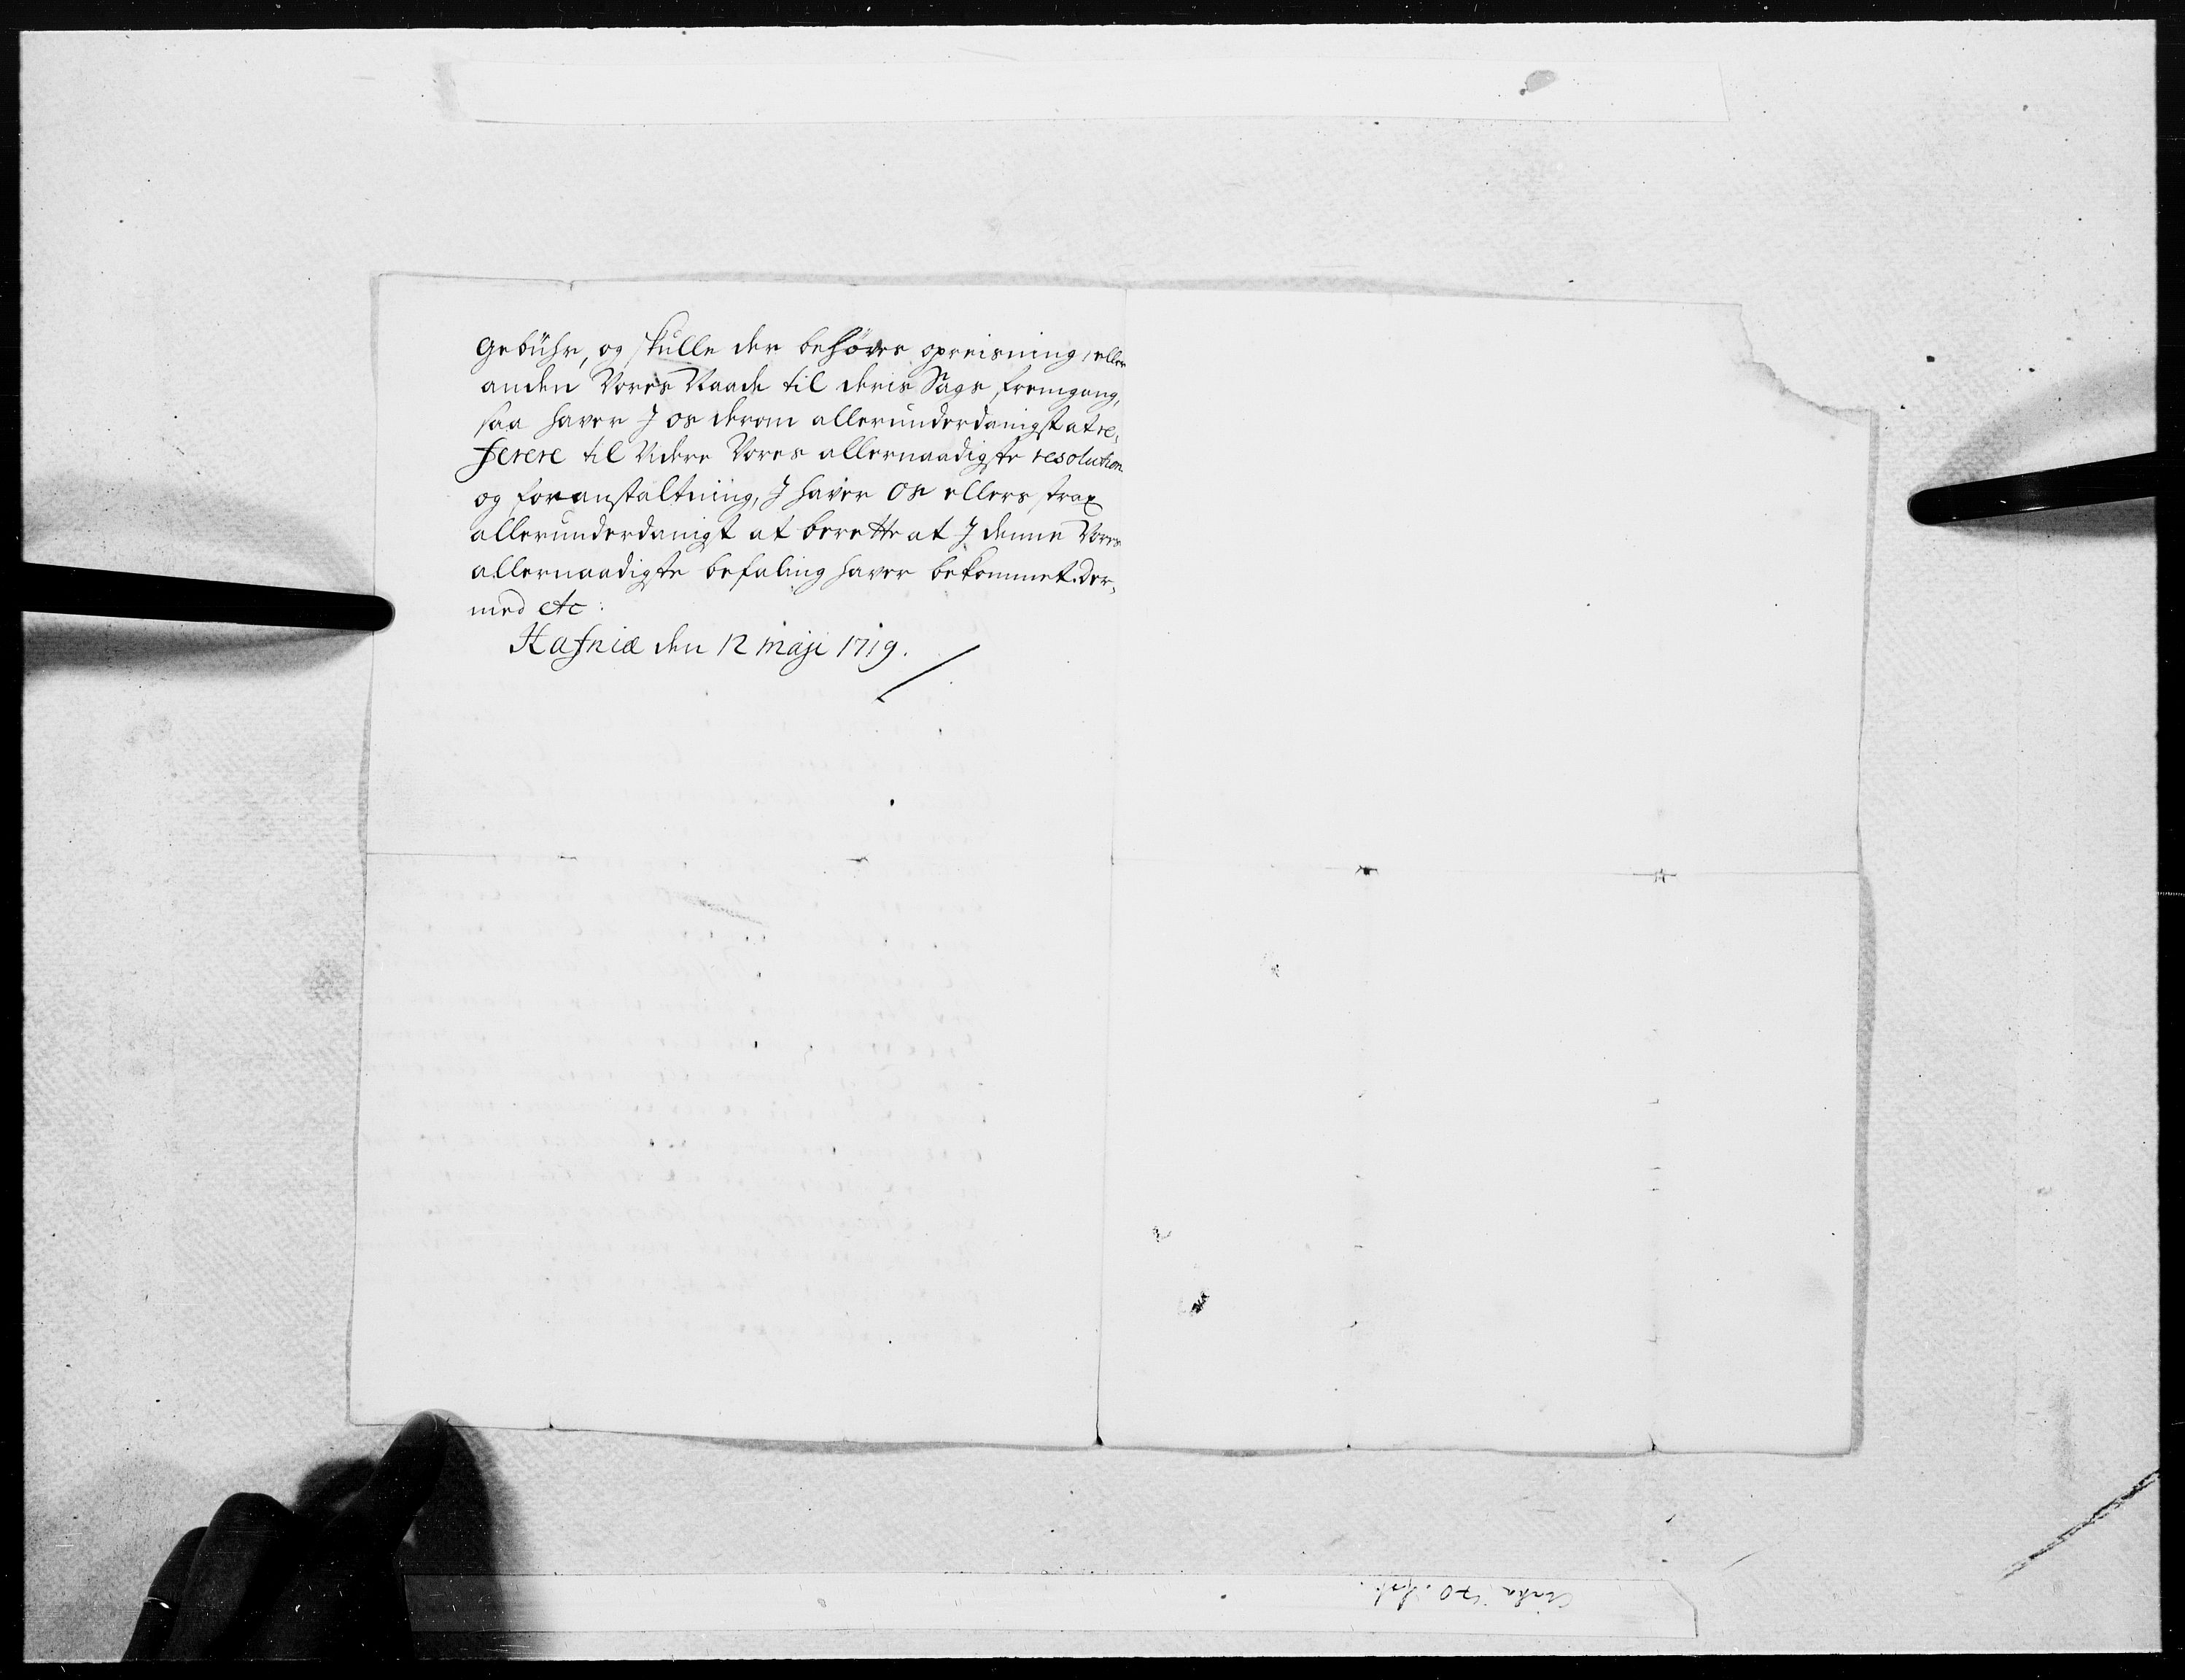 gebühr, og skulle der behøves opreisning, eller
anden Vores Naade til deris Sags fremgang,
saa haver I os derom allerunderdanigst at re-
ferere til Videre Vores allernaadigste resolution
og foranstaltning, I haver Os ellers strax
allerunderdanigst at berette at I denne Vores
allernaadigste befaling haver bekommet. Der-
med etc:
Hafniæ den 12 maji 1719.